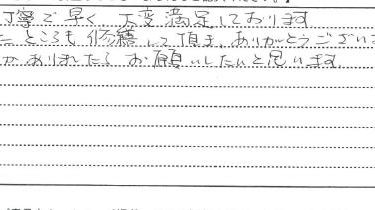 丁寧で早く 大変満足しております
ところも修繕して頂き、ありがとうござい
がありましたら お願いしたいと思います。